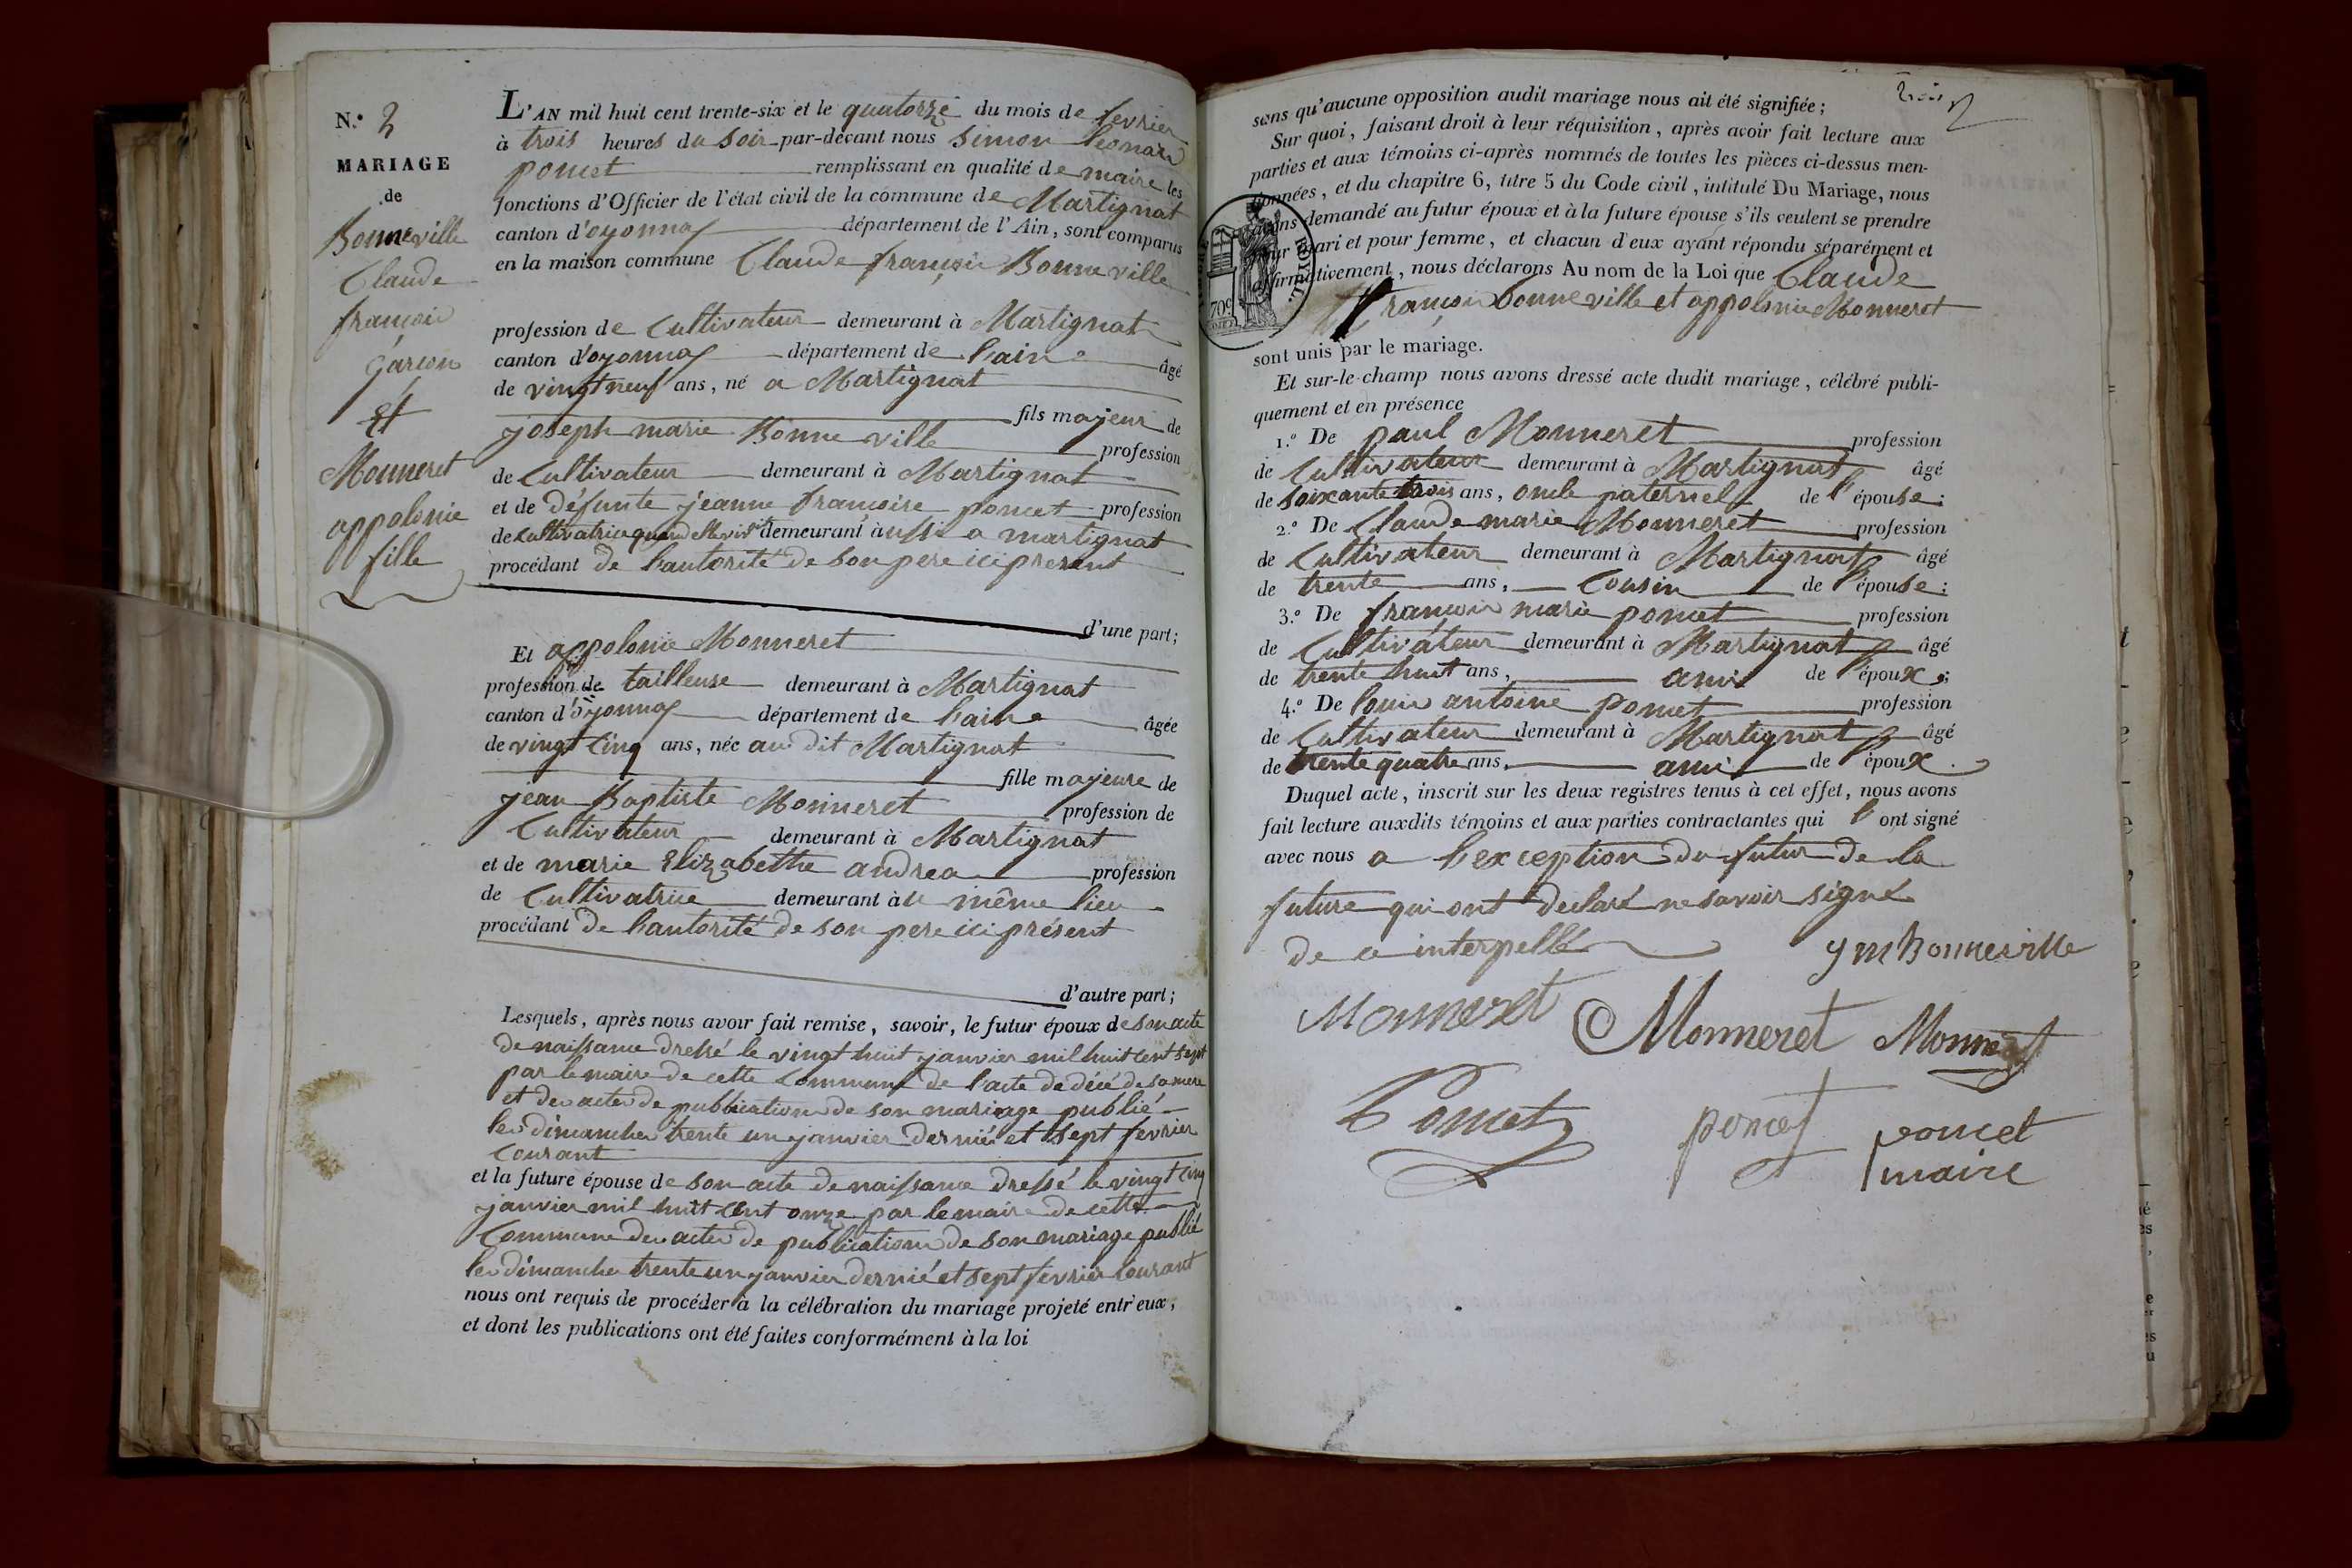 N.o 2
MARIAGE
de
Bonneville
Claude
françois
garçon
et
Monneret
appolonie
fille
L'AN mil huit cent trente-six et le quatorze du mois de fevrier
à trois heures du soir par-devant nous simon leonard
poncet remplissant en qualité de maire les
fonctions d'Officier de l'état civil de la commune de Martignat
canton d'oyonnax département de l'Ain, sont comparus
en la maison commune Claude françois Bonneville
profession de Cultivateur demeurant à Martignat
canton d'oyonnax département de l'ain âgé
de vingt neuf ans, né a Martignat
fils majeur de
joseph marie Bonneville profession
de Cultivateur demeurant à Martignat
et de défunte jeanne françoise poncet profession
de cultivatrice quand elle vivait demeurant aussi a martignat
procédant de l'autorité de son pere ici présent
d'une part;
Et appolonie Monneret
profession de tailleuse demeurant à Martignat
canton d'oyonnax département de l'ain âgée
de vingt cinq ans, née au dit Martignat
fille majeure de
jean Baptiste Monneret profession de
Cultivateur demeurant à Martignat
et de marie Elizabethe andrea profession
de Cultivatrice demeurant au même lieu
procédant de l'autorité de son pere ici présent
d'autre part;
Lesquels, après nous avoir fait remise, savoir, le futur époux de son acte
de naissance dressé le vingt huit janvier mil huit cent sept
par le maire de cette commune de l'acte de décé de sa mere
et des actes de publication de son mariage publié
les dimanches trente un janvier dernié et sept fevrier
courant
et la future épouse de son acte de naissance dressé le vingt cinq
janvier mil huit cent onze par le maire de cette
Commune des actes de publication de son mariage publié
les dimanches trente un janvier dernié et sept fevrier courant
nous ont requis de procéder à la célébration du mariage projeté entr'eux,
et dont les publications ont été faites conformément à la loi
trois
sans qu'aucune opposition audit mariage nous ait été signifiée;
Sur quoi, faisant droit à leur réquisition, après avoir fait lecture aux
parties et aux témoins ci-après nommés de toutes les pièces ci-dessus men-
tionnées, et du chapitre 6, titre 5 du Code civil, intitulé Du Mariage, nous
avons demandé au futur époux et à la future épouse s'ils veulent se prendre
pour mari et pour femme, et chacun d'eux ayant répondu séparément et
affirmativement, nous déclarons Au nom de la Loi que Claude
françois bonneville et appolonie Monneret
ROYAL.
70c
sont unis par le mariage.
Et sur-le-champ nous avons dressé acte dudit mariage, célébré publi-
quement et en présence
1.o De paul Monneret profession
de Cultivateur demeurant à Martignat âgé
de soixante trois ans, oncle paternel de l'épouse;
2.o De Claude marie Monneret profession
de Cultivateur demeurant à Martignat âgé
de trente ans, Cousin de l'épouse;
3.o De françois marie poncet profession
de Cultivateur demeurant à Martignat âgé
de trente huit ans, ami de l'époux;
4.o De louis antoine poncet profession
de Cultivateur demeurant à Martignat âgé
de trente quatre ans, ami de l'époux.
Duquel acte, inscrit sur les deux registres tenus à cet effet, nous avons
fait lecture auxdits témoins et aux parties contractantes qui l'ont signé
avec nous a l'exception du futur de la
future qui ont declaré ne savoir signé
de ce interpellé
J m Bonneville
Monneret Monneret Monneret
Poncet poncet poncet
maire